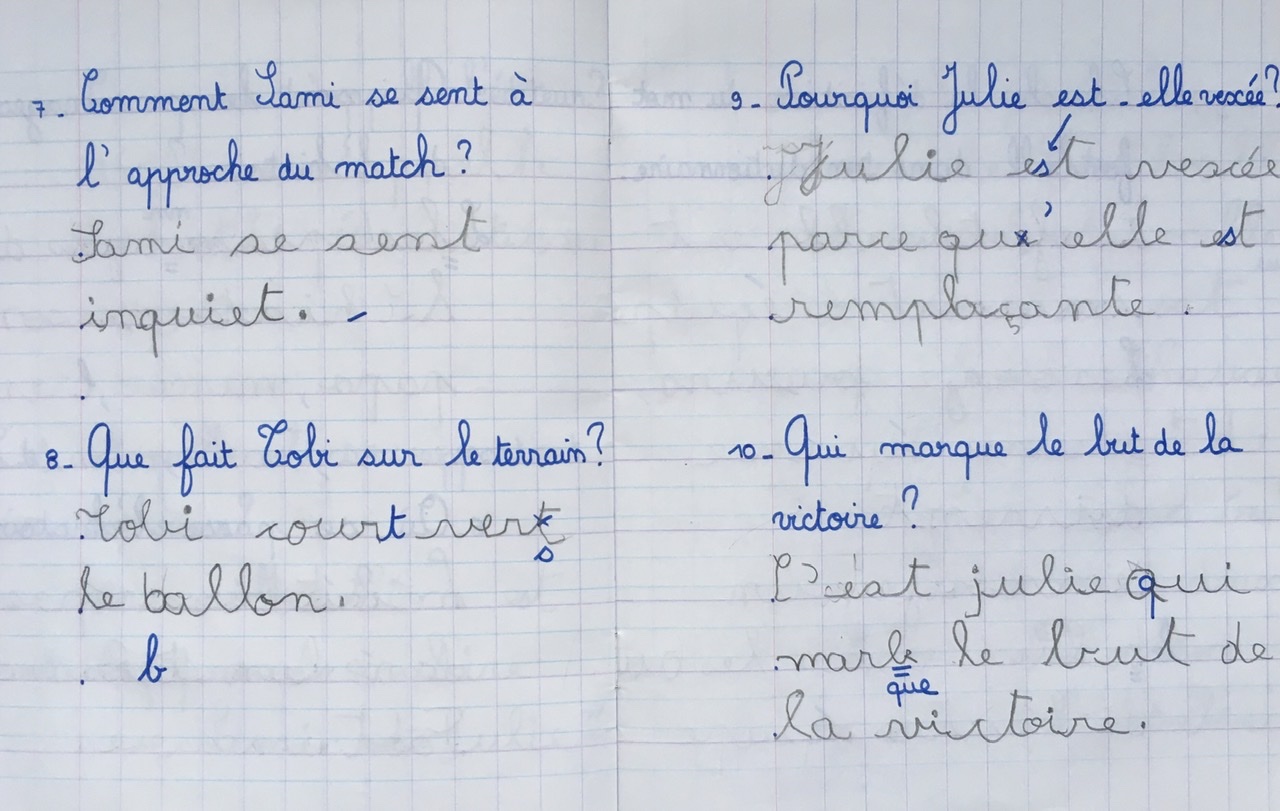 7. Comment Sami se sent à
l'approche du match ?
Sami se sent
inquiet.
8. Que fait Tobi sur le terrain ?
Tobi court vert
s
le ballon.
b
9. Pourquoi Julie est-elle vexée ?
Julie est vexée
parce qu'elle est
remplaçante.
10. Qui marque le but de la
victoire ?
C'est julie qui
mark le but de
que
la victoire.